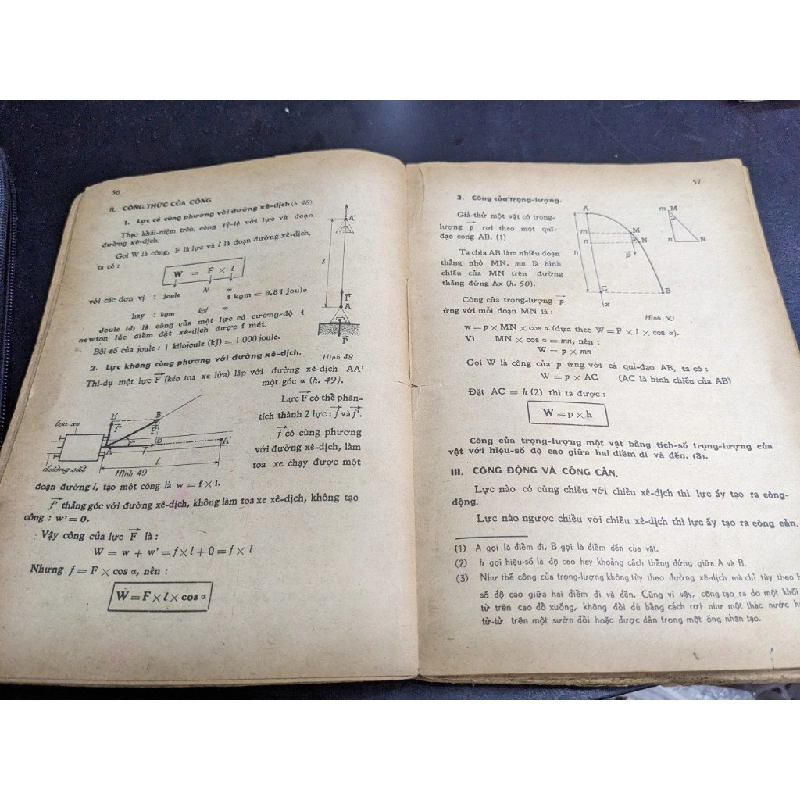 56
II. CÔNG THỨC CỦA CÔNG
1. Lực có cùng phương với đường xê-dịch (h. 48)
Theo khái-niệm trên, công tỷ-lệ với lực và đoạn
đường xê-dịch.
Gọi W là công, F là lực và l là đoạn đường xê-dịch,
ta có :
W = F × l
với các đơn vị : joule N m
hay : kgm kgf m
1 kgm = 9,81 joule
Joule (J) là công của một lực có cường-độ 1
newton lúc điểm đặt xê-dịch được 1 mét.
Bội số của joule : 1 kilojoule (kJ) = 1 000 joule.
Hình 48
2. Lực không cùng phương với đường xê-dịch.
Thí-dụ một lực F (kéo toa xe lửa) lập với đường xê-dịch AA'
một góc α (h. 49).
Lực F có thể phân-
tích thành 2 lực : f và f'.
f có cùng phương
với đường xê-dịch, làm
toa xe chạy được một
toa xe
đường sắt
Hình 49
đoạn đường l, tạo một công là w = f × l.
f' thẳng góc với đường xê-dịch, không làm toa xe xê-dịch, không tạo
công : w' = 0.
Vậy công của lực F là :
W = w + w' = f × l + 0 = f × l
Nhưng f = F × cos α, nên :
W = F × l × cos α
57
3. Công của trọng-lượng.
Giả-thử một vật có trọng-
lượng p rơi theo một quĩ-
đạo cong AB. (1)
Ta chia AB làm nhiều đoạn
thẳng nhỏ MN, mn là hình
chiếu của MN trên đường
thẳng đứng Ax (h. 50).
Công của trọng-lượng p
ứng với mỗi đoạn MN là :
Hình 50
w = p × MN × cos α (dựa theo W = F × l × cos α).
Vì MN × cos α = mn, nên :
W = p × mn
Gọi W là công của p ứng với cả quĩ-đạo AB, ta có :
W = p × AC (AC là hình chiếu của AB)
Đặt AC = h (2) thì ta được :
W = p × h
Công của trọng-lượng một vật bằng tích-số trọng-lượng của
vật với hiệu-số độ cao giữa hai điểm đi và đến. (3).
III. CÔNG ĐỘNG VÀ CÔNG CẢN.
Lực nào có cùng chiều với chiều xê-dịch thì lực ấy tạo ra công-
động.
Lực nào ngược chiều với chiều xê-dịch thì lực ấy tạo ra công cản.
(1) A gọi là điểm đi, B gọi là điểm đến của vật.
(2) h gọi hiệu-số là độ cao hay khoảng cách thẳng đứng giữa A và B.
(3) Như thế công của trọng-lượng không tùy theo đường xê-dịch mà chỉ tùy theo h
số độ cao giữa hai điểm đi và đến. Cũng vì vậy, công tạo ra do một khối
từ trên cao đổ xuống, không đổi dù bằng cách rơi như một thác nước h
từ-từ trên một sườn đồi hoặc được dẫn trong một ống nhân tạo.